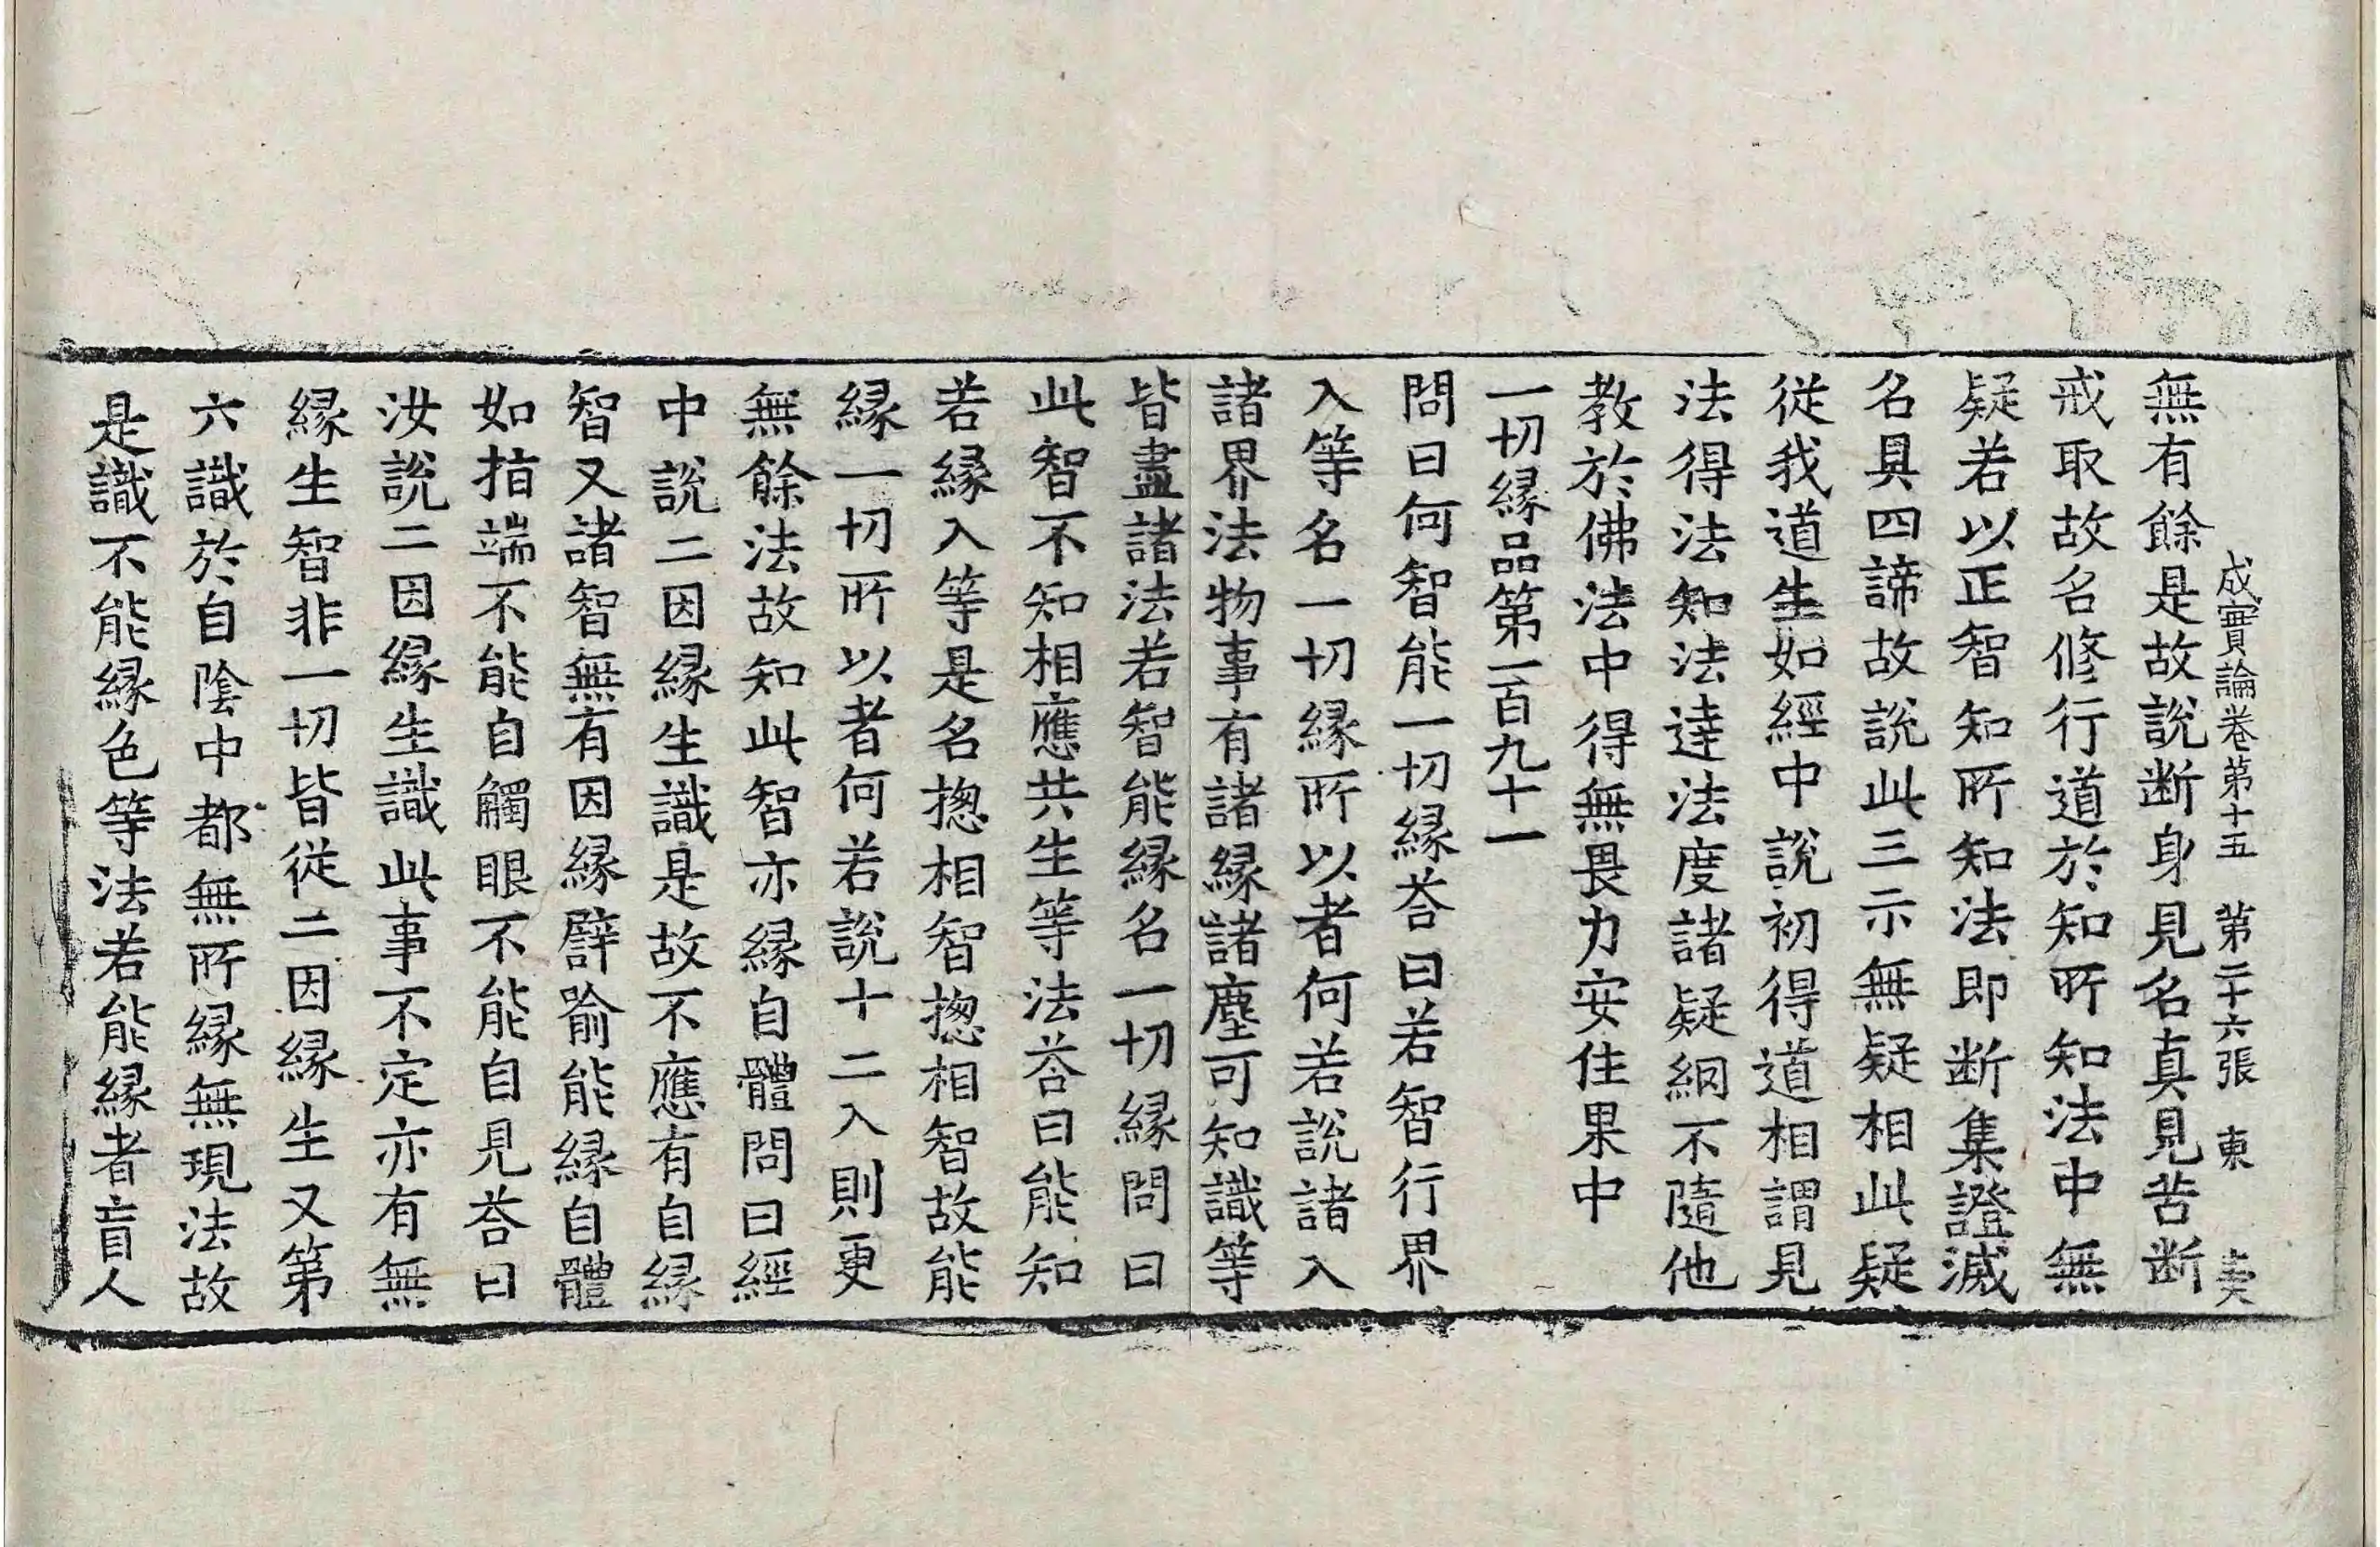 成實論卷第十五　第二十六張　東
無有餘是故說断身見名真見苦断
戒取故名修行道於知所知法中無
疑若以正智知所知法即断集證滅
名具四諦故說此三示無疑相此疑
從我道生如經中說初得道相謂見
法得法知法達法度諸疑網不隨他
教於佛法中得無畏力安住果中
一切縁品第一百九十一
問曰何智能一切縁荅曰若智行界
入等名一切縁所以者何若說諸入
諸界法物事有諸縁諸塵可知識等
皆盡諸法若智能縁名一切縁問曰
此智不知相應共生等法荅曰能知
若縁入等是名揔相智揔相智故能
縁一切所以者何若說十二入則更
無餘法故知此智亦縁自體問曰經
中說二因縁生識是故不應有自縁
智又諸智無有因縁譬喻能縁自體
如指端不能自觸眼不能自見荅曰
汝說二因縁生識此事不定亦有無
縁生智非一切皆從二因縁生又第
六識於自陰中都無所縁無現法故
是識不能縁色等法若能縁者盲人